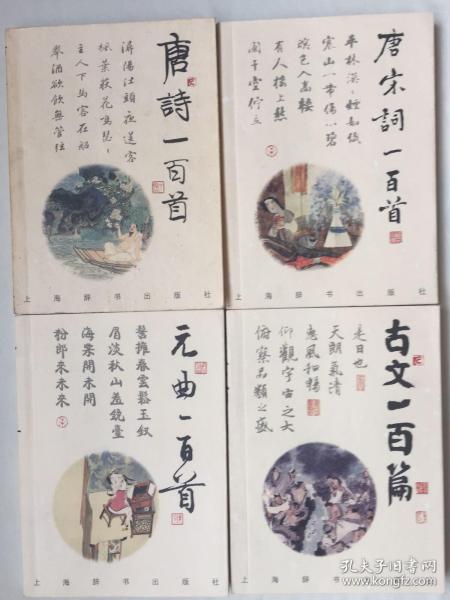 唐詩一百首
潯陽江頭夜送客
楓葉荻花鳴瑟瑟
主人下馬客在船
舉酒欲飲無管弦
上海辞书出版社
唐宋詞一百首
平林漠漠煙如織
寒山一帶傷心碧
暝色入高樓
有人樓上愁
闌干空佇立
上海辞书出版社
元曲一百首
髻擁春雲鬆玉釵
眉淡秋山羞鏡臺
海棠開未開
粉郎來未來
上海辞书出版社
古文一百篇
是日也
天朗氣清
惠風和暢
仰觀宇宙之大
俯察品類之盛
上海辞书出版社
孔夫子旧书网